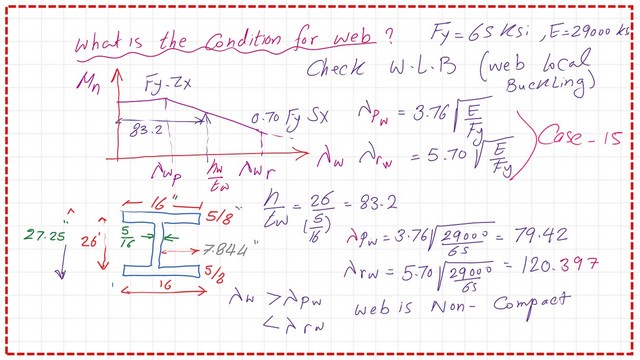 What is the Condition for web ?
Fy=65 Ksi , E=29000 ks
Check W.L.B (web local Buckling)
Mn
Fy-Zx
0.70 Fy Sx
83.2
λwp
hw/tw
λwr
λpw = 3.76 √(E/Fy)
λw λrw = 5.70 √(E/Fy)
Case-15
h/tw = 26/(5/16) = 83.2
16"
5/8"
27.25"
26"
5/16
7.844"
5/8
16
λpw = 3.76 √(29000/65) = 79.42
λrw = 5.70 √(29000/65) = 120.397
λw > λpw
< λrw
web is Non-Compact